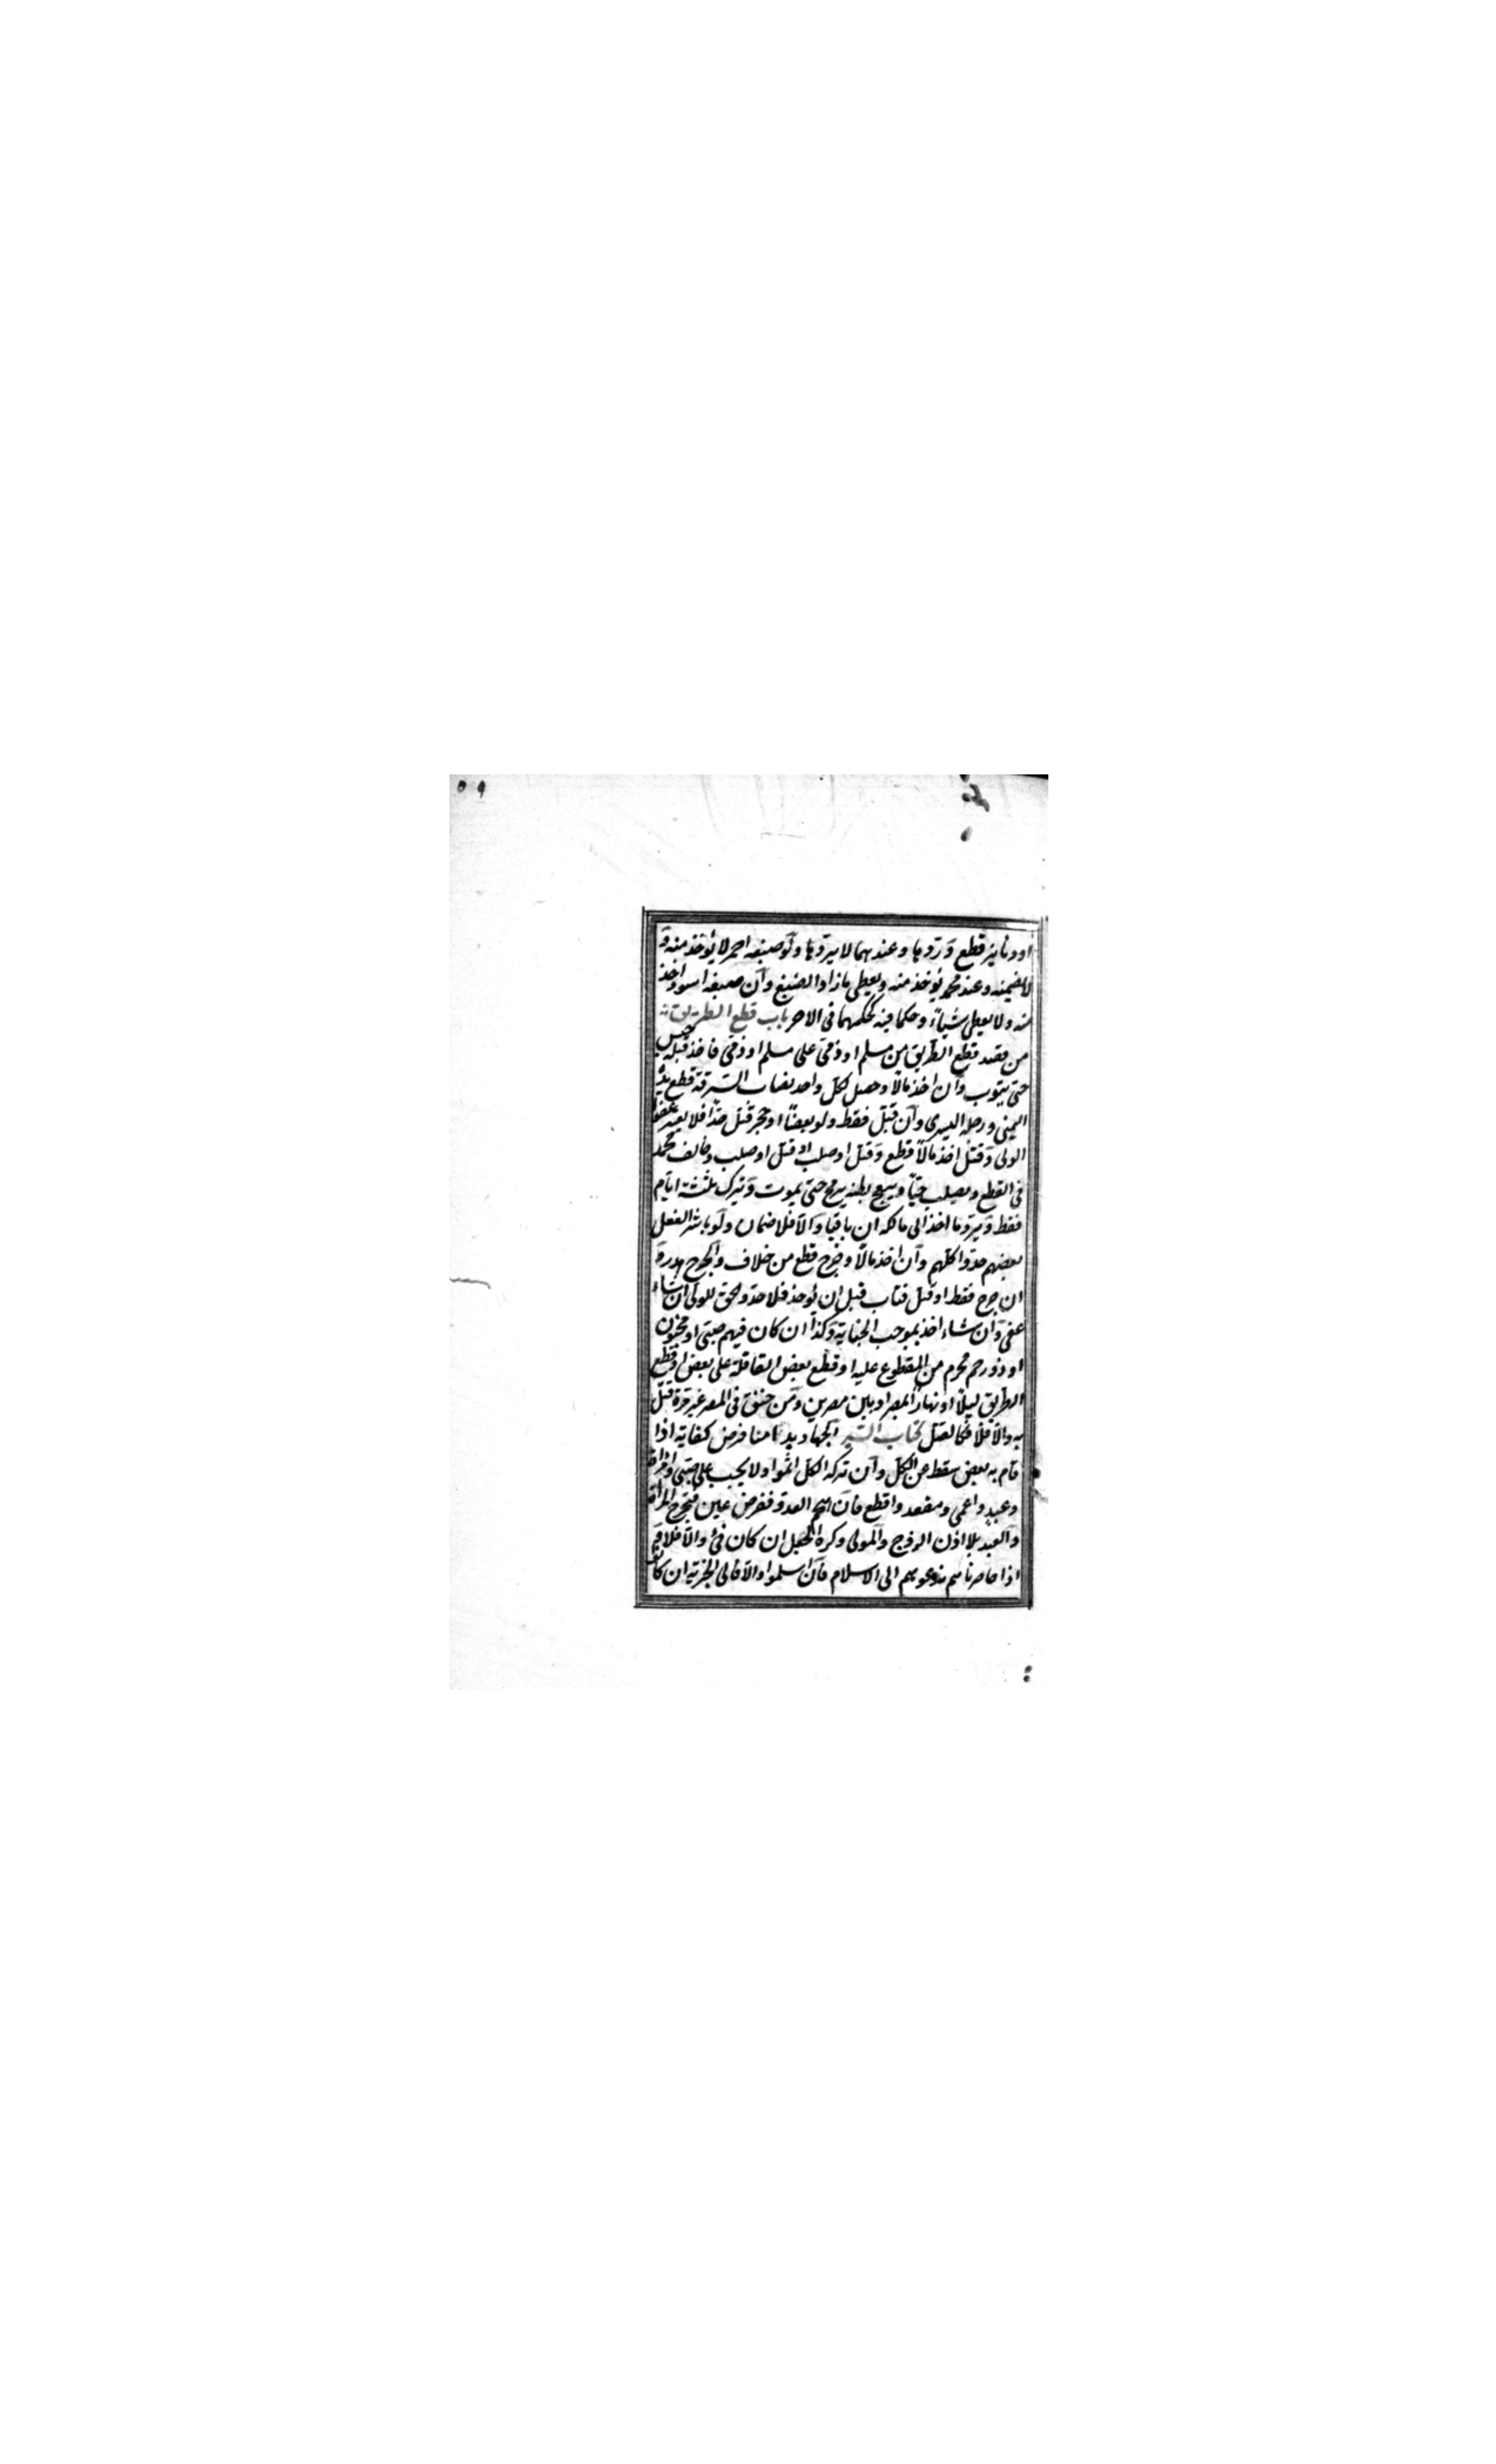 ٥٩
او دنانير قطع وردها وعندهما لا يردها ولو صبغه احمر لا يؤخذ منه و
لا يضمنه وعند محمد يؤخذ منه ويعطى ما زاد الصبغ وان صبغه اسود اخذ
منه ولا يعطى شيأ وحكما فيه كحكمهما فى الاحمر باب قطع الطريق
من قصد قطع الطريق من مسلم او ذمى على مسلم او ذمى فاخذ قبله حبس
حتى يتوب وان اخذ مالا وحصل لكل واحد نصاب السرقة قطع يده
اليمنى ورجله اليسرى وان قتل فقط ولو بعصا او حجر قتل حدا فلا يعتبر عفو
الولى وقتل اخذ مالا قطع وقتل او صلب او قتل او صلب وخالف محمد
فى القطع ويصلب حيا ويبعج بطنه برمح حتى يموت ويترك ثلثة ايام
فقط ويرد ما اخذ الى مالكه ان باقيا والا فلا ضمان ولو باشر الفعل
بعضهم حدوا كلهم وان اخذ مالا وجرح قطع من خلاف والجرح هدر و
ان جرح فقط او قتل فتاب قبل ان يؤخذ فلا حد والحق للولى ان شاء
عفى وان شاء اخذ بموجب الجناية وكذا ان كان فيهم صبى او مجنون
او ذو رحم محرم من المقطوع عليه او قطع بعض القافلة على بعض او قطع
الطريق ليلا او نهارا بمصر او بين مصرين ومن خنق فى المصر غير مرة قتل
به والا فلا فكالقتل كتاب السير الجهاد بدأ منا فرض كفاية اذا
قام به بعض سقط عن الكل وان تركه الكل اثموا ولا يجب على صبى وامرأة
وعبد واعمى ومقعد واقطع فان هجم العدو ففرض عين فتخرج المرأة
والعبد بلا اذن الزوج والمولى وكره الجعل ان كان فئ والا فلا و
اذا حاصرناهم ندعوهم الى الاسلام فان اسلموا والا فالى الجزية ان كانوا